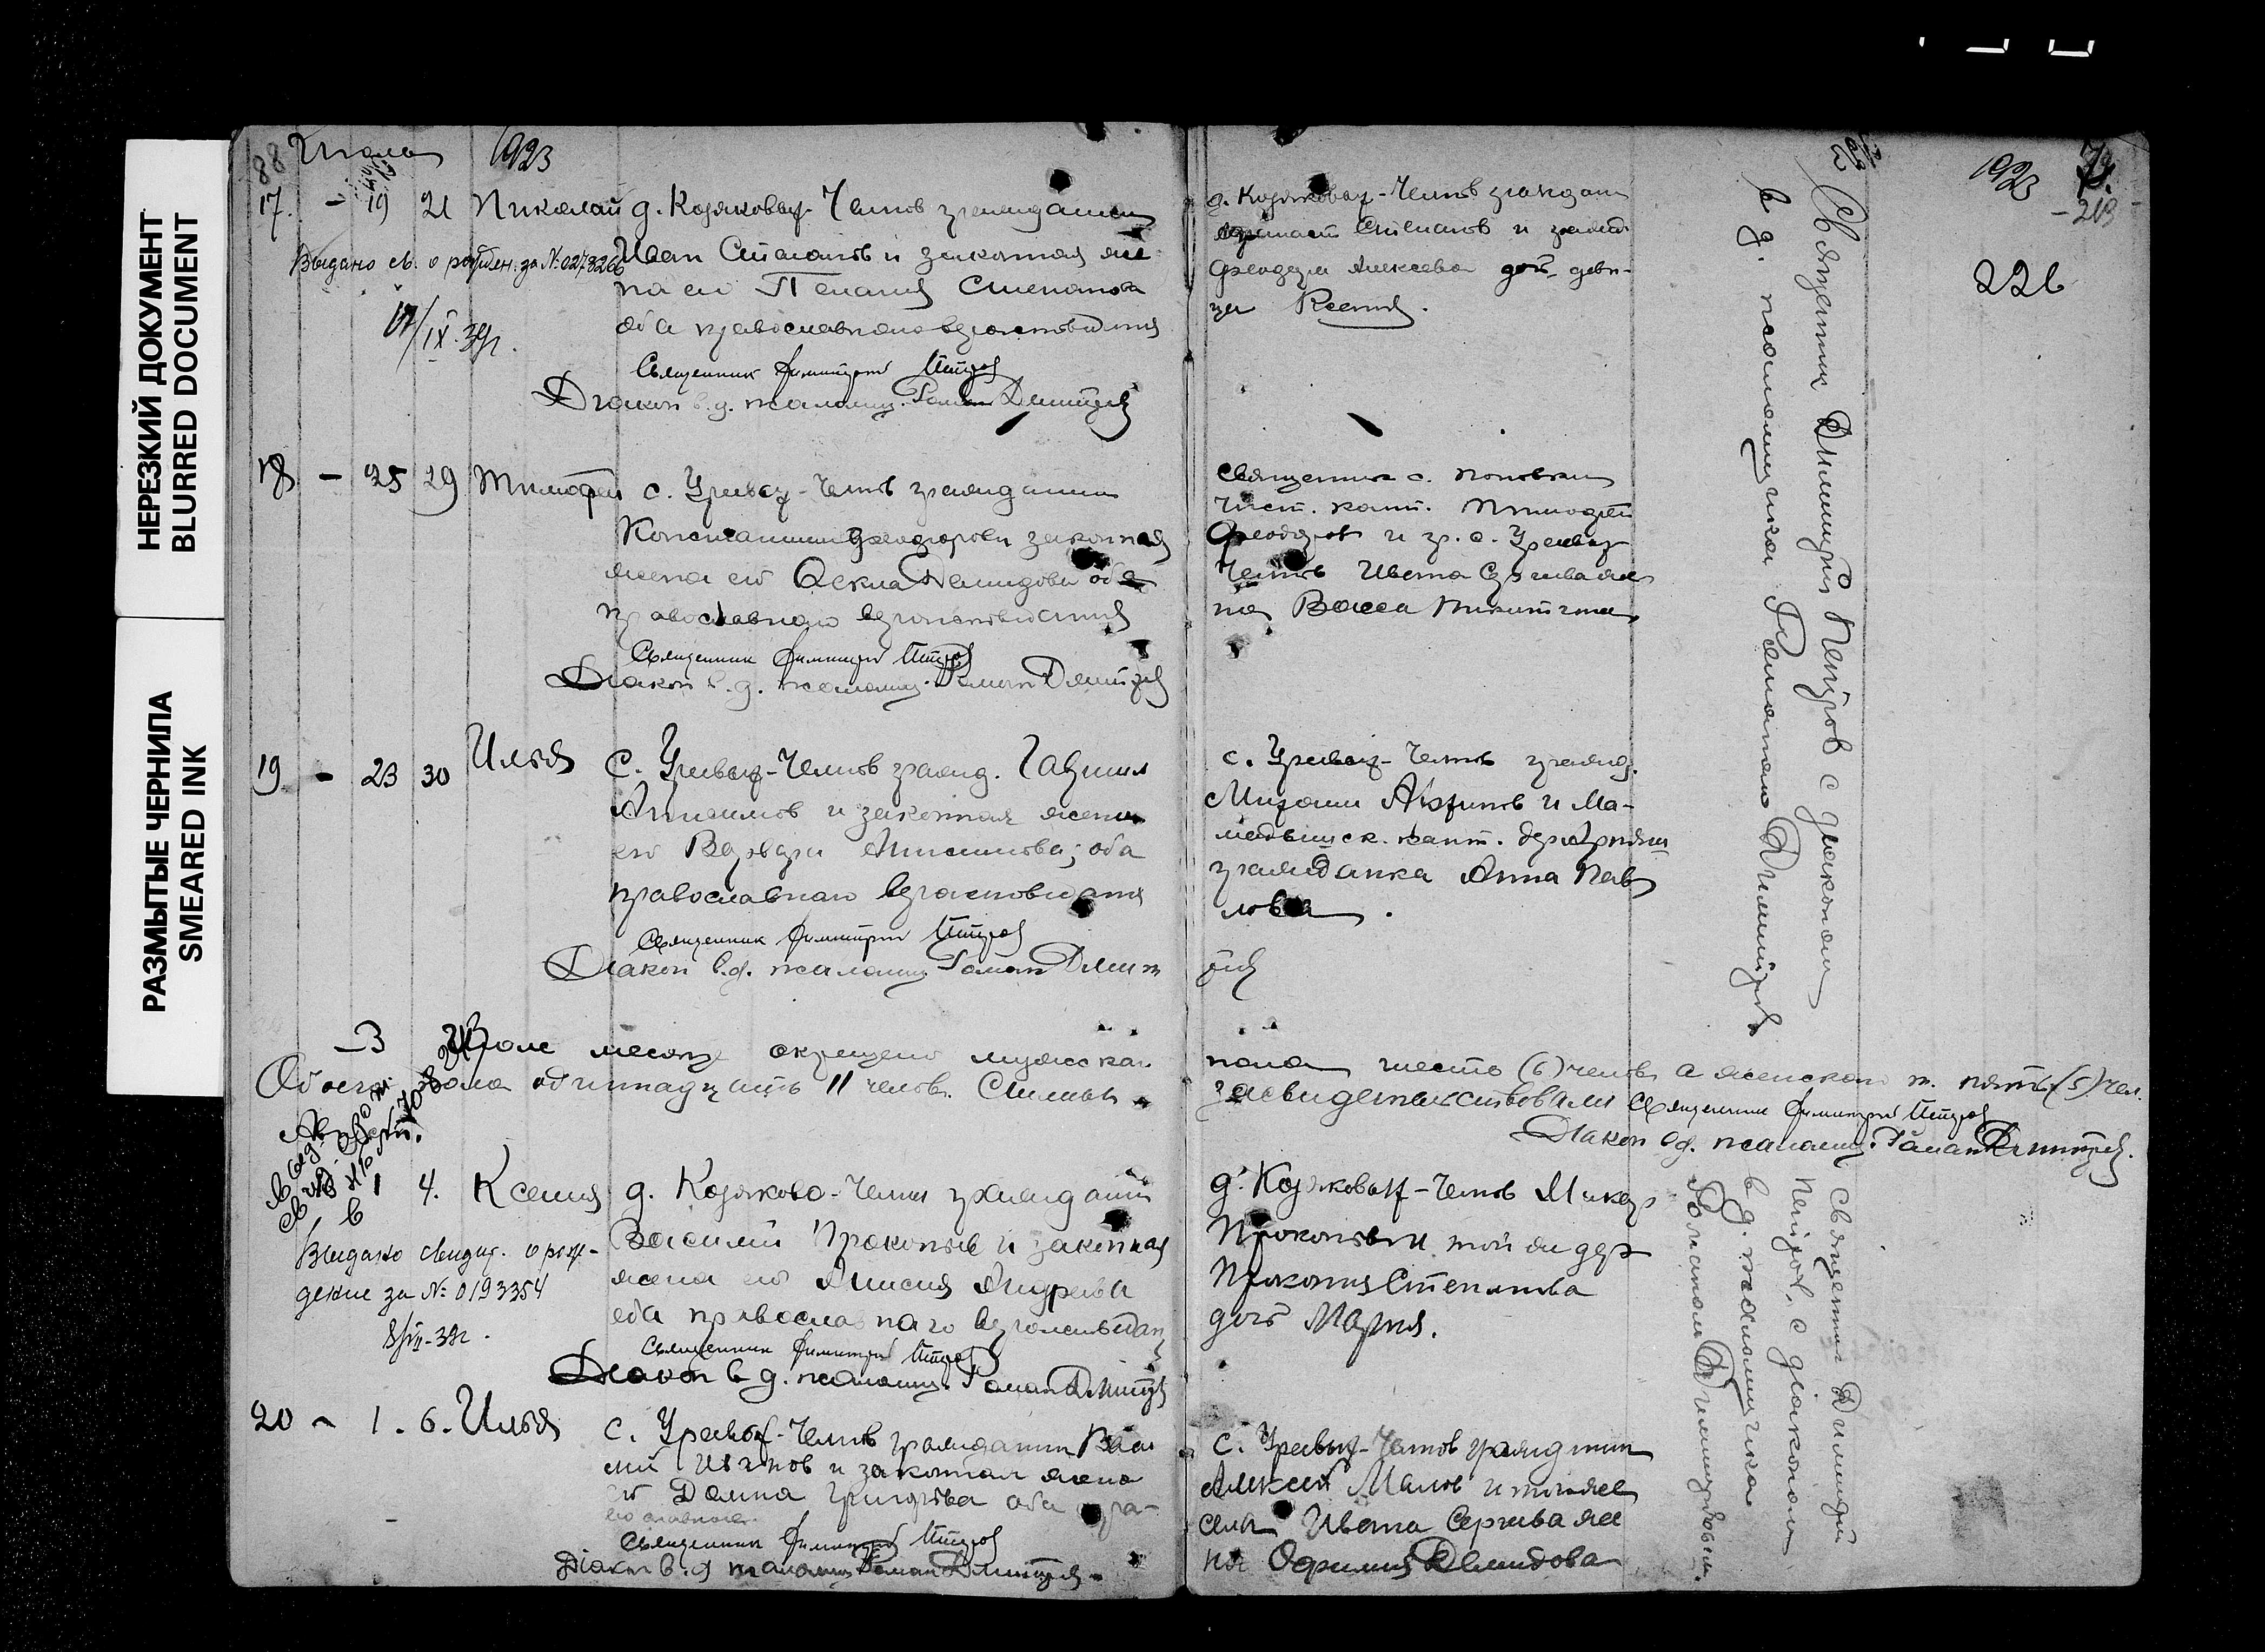 НЕРЕЗКИЙ ДОКУМЕНТ
BLURRED DOCUMENT
РАЗМЫТЫЕ ЧЕРНИЛА
SMEARED INK
88 1923
17. - 19 21 Николай д. Коряковых-Челнов гражданин
Выдано св. о рожден. за №
Иван Степанов и законная же-
на его Пелагия Степанова
оба православнаго вероисповедания
IX. 39г.
Священник Димитрий Петров
Диакон в.д. псаломщ. Роман Димитриев
18 - 25 29 Тимофей с. Уреевых-Челнов гражданин
Константин Феодоров законная
жена его Фекла Демидова оба
православнаго вероисповедания
Священник Димитрий Петров
Диакон в.д. псаломщ. Роман Димитриев
19 - 23 30 Илья с. Уреевых-Челнов гражд. Гавриил
Анисимов и законная жена
его Варвара Анисимова; оба
православнаго вероисповедания
Священник Димитрий Петров
Диакон в.д. псаломщ. Роман Димит
риев
месяце окрещено мужска
Обоего пола одиннадцать 11 челов.
1 4. Ксения д. Коряково-Челны гражданин
Василий Прокопьев и законная
жена его Анисия Андреева
оба православнаго вероисповедан
Выдано свидет. о рож-
дение за № 0193354
Священник Димитрий Петров
Диакон в д. псаломщ. Роман Димитриев
20 - 1. 6. Илья с. Уреевых-Челнов гражданин Васи
лий Иванов и законная жена
его Домна Григорьева оба пра-
вославнаго
Священник Димитрий Петров
Диакон в.д псаломщ Роман Димитриев
1923
213
226
д. Коряковых-Челнов граждан
Степанов и гражд
Феодора Алексеева дочь деви-
ца Ксения.
Священник с. Поповки
Чист. кант. Тимофей
Феодоров и гр. с. Уреевых
Челнов Ивана Сергеева же
на Васса Никитина
с. Уреевых-Челнов гражд.
Михаил и Ма-
мадышск. кант.
гражданка Анна Пав
лова.
пола шесть (6) челов. а женскаго п. пять (5) чел.
засвидетельствовали Священник Димитрий Петров
Диакон в.д. псаломщ. Роман Димитриев.
д. Коряковых-Челнов Макар
Прокопьев и той же дер
Прокопия Степанова
дочь Мария.
с. Уреевых-Челнов гражданин
Алексей Малов и того же
села Ивана Сергеева же
на Ефимия Демидова
Священник Димитрий Петров с диаконом
в д. псаломщика Романом Димитриев
Священник Димитрий
Петров с диаконом
в д. псаломщика
Романом Димитриевым.